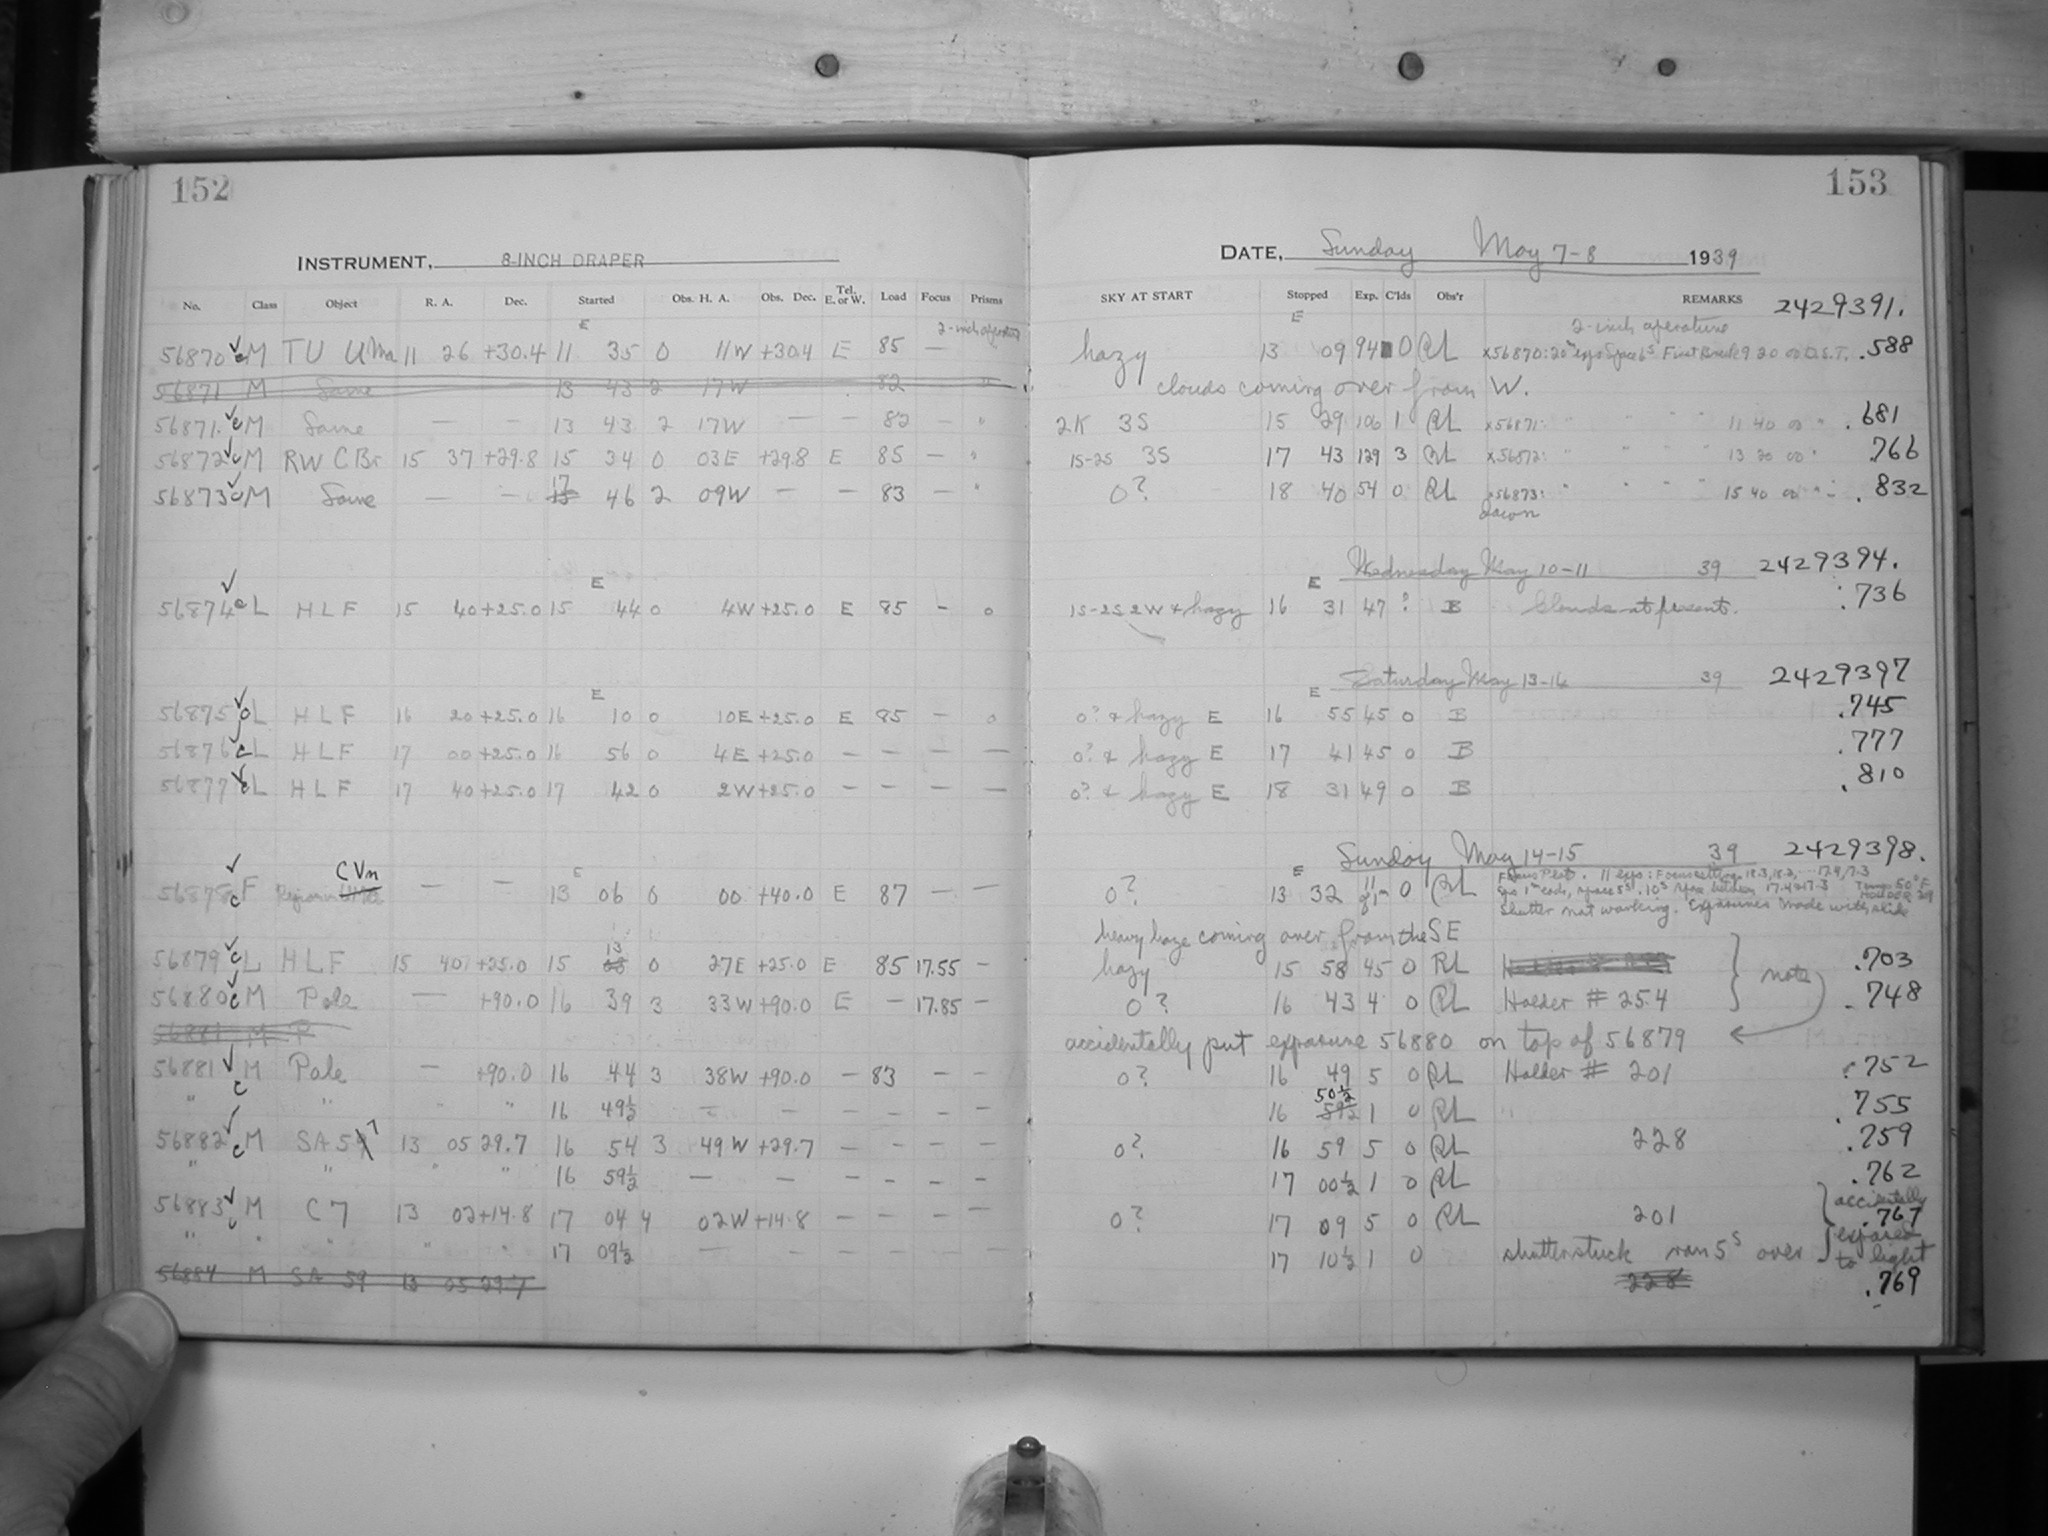 152
153
INSTRUMENT, 8-INCH DRAPER
DATE, Sunday May 7-8 1939
No. Class Object R. A. Dec. Started Obs. H. A. Obs. Dec. Tel. E. or W. Load Focus Prisms
SKY AT START Stopped Exp. C'lds Obs'r REMARKS 2429391.
E 2-inch aperature E 2-inch aperature
56870 c M TU UMa 11 26 +30.4 11 35 0 11W +30.4 E 85 — hazy 13 09 94 0 RL x56870: 20m expo Space 6s First Break 9 20 00 D.S.T. .588
56871 M Same 13 43 2 17W 82 " clouds coming over from W.
56871. c M Same — — 13 43 2 17W — — 82 — " 2K 3S 15 29 106 1 RL x56871: " " " 11 40 00 " .681
56872 c M RW CBr 15 37 +29.8 15 34 0 03E +29.8 E 85 — " 1S-2S 3S 17 43 129 3 RL x56872: " " " 13 20 00 " .766
56873 c M Same — — 15 17 46 2 09W — — 83 — " 0? 18 40 54 0 RL x56873: " " " 15 40 00 " .832
dawn
Wednesday May 10-11 39 2429394.
E E
56874 c L HLF 15 40 +25.0 15 44 0 4W +25.0 E 85 — 0 1S-2S 2W & hazy 16 31 47 ? B Clouds at present. .736
Saturday May 13-16 39 2429397
E E
56875 c L HLF 16 20 +25.0 16 10 0 10E +25.0 E 85 — 0 0? & hazy E 16 55 45 0 B .745
56876 c L HLF 17 00 +25.0 16 56 0 4E +25.0 — — — — 0? & hazy E 17 41 45 0 B .777
56877 c L HLF 17 40 +25.0 17 42 0 2W +25.0 — — — — 0? & hazy E 18 31 49 0 B .810
Sunday May 14-15 39 2429398.
CVn E E Focus Plate. 11 expo: Focus setting 18.3, 18.2, ... 17.4, 17.3
56878 c F Region — — 13 06 0 00 +40.0 E 87 — — 0? 13 32 11 of 1m 0 RL Expo 1m each, space 5s. 10s space between 17.4 & 17.3 Temp 50°F
HOLDER 219
Shutter not working. Exposures made with slide
heavy haze coming over from the SE
56879 c L HLF 15 40 +25.0 15 08 13 0 27E +25.0 E 85 17.55 — hazy 15 58 45 0 RL .703
note
56880 c M Pole — +90.0 16 39 3 33W +90.0 E — 17.85 — 0? 16 43 4 0 RL Holder # 254 .748
56881 M P accidentally put exposure 56880 on top of 56879
56881 c M Pole — +90.0 16 44 3 38W +90.0 — 83 — — 0? 16 49 5 0 RL Holder # 201 .752
" " " " 16 49½ — — — — — — 16 59½ 50½ 1 0 RL " .755
56882 c M SA 57 13 05 29.7 16 54 3 49W +29.7 — — — — 0? 16 59 5 0 RL 228 .759
" " " " 16 59½ — — — — — — 17 00½ 1 0 RL .762
56883 c M C7 13 02 +14.8 17 04 4 02W +14.8 — — — — 0? 17 09 5 0 RL 201 .767
accidentally exposed to light
" " " " " 17 09½ — — — — — — 17 10½ 1 0 shutter stuck ran 5s over .769
56884 M SA 59 13 05 29.7 228